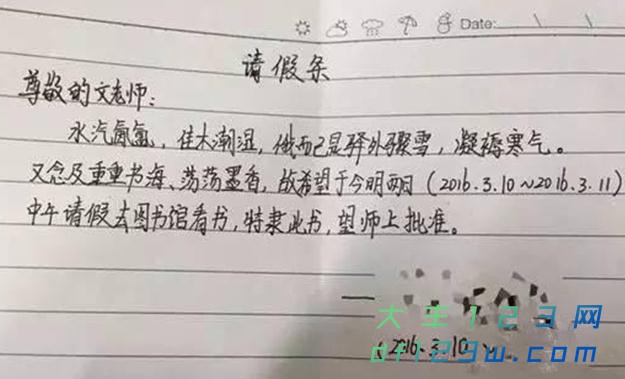 Date: \ \
请假条
尊敬的文老师：
水汽氤氲，佳木潮湿，俄而已显驿外骤雪，凝褥寒气。
又念及重重书海、荡荡墨香，故希望于今明两日（2016.3.10~2016.3.11）
中午请假去图书馆看书，特隶此书，望师上批准。
大学123网
2016.3.10